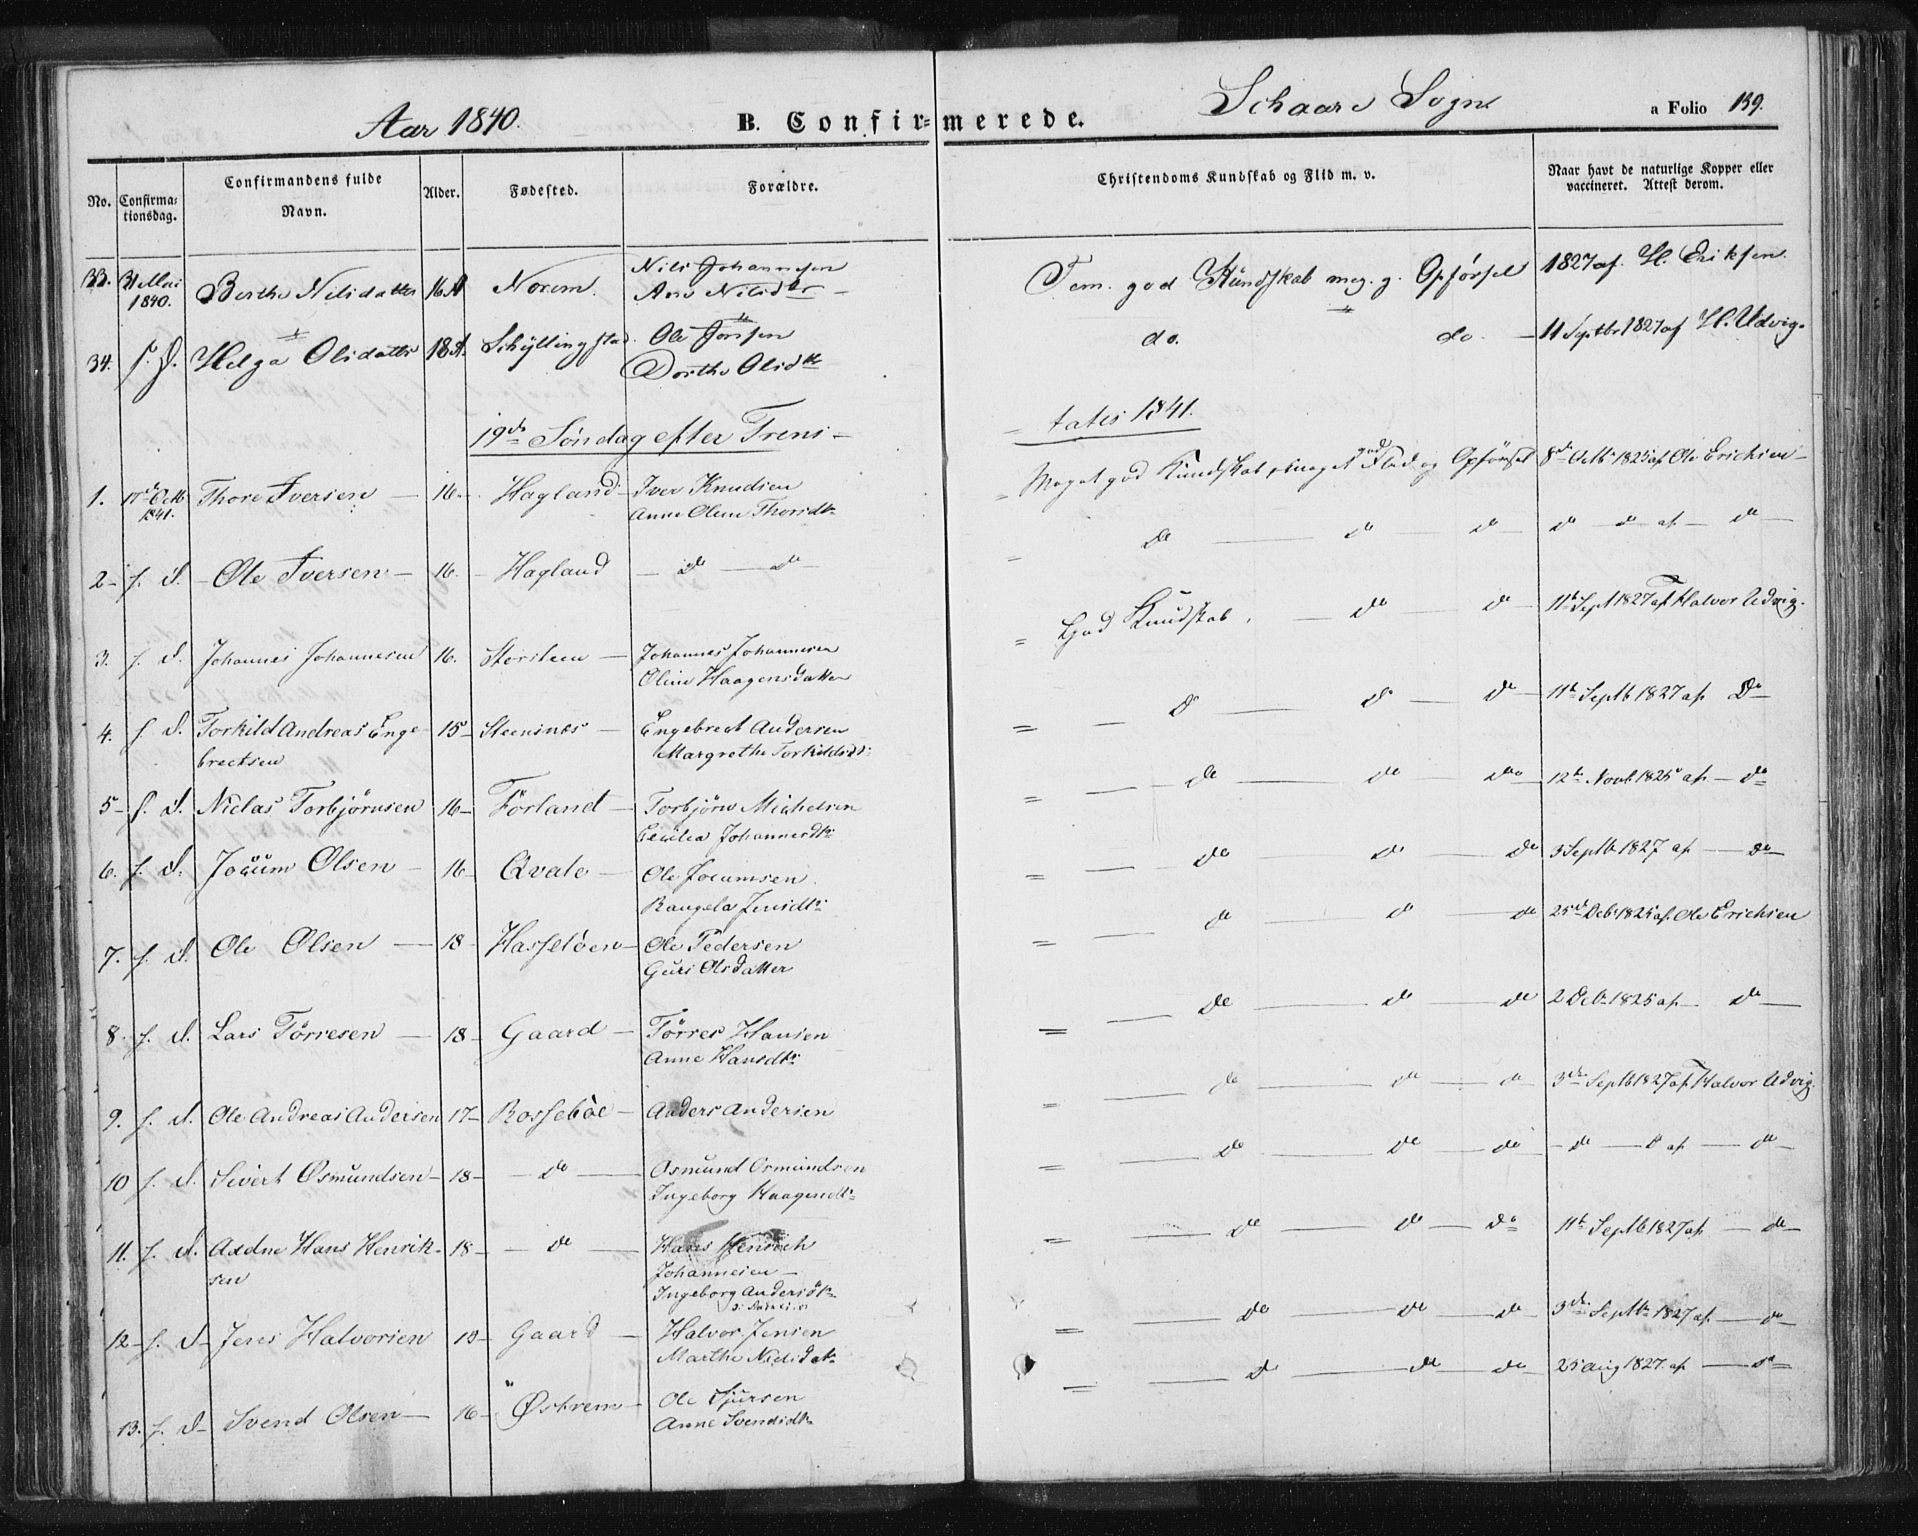 Aar 1840.
B. Confirmerede.
Schaare Sogn
a Folio 139.
No.
Confirmationsdag.
Confirmandens fulde Navn.
Alder.
Fødested.
Forældre.
Christendoms Kundskab og Flid m. v.
Naar havt de naturlige Kopper eller vaccineret. Attest derom.
33. 31 Mai 1840. Berthe Nilsdatter 16 A Norem. Nils Johannesen Tem. god Kundskab meg. g. Opførsel 1827 af. H. Eriksen.
Ane Nilsdtr
34. s. D. Helga Olsdatter 18 A. Schyllingstad. Ole do. do - 11 Septbr 1827 af H. Udvig.
Dorthe Olsdtr
19de Søndag efter Trini-
= tatis 1841.
1. 17de Octb 1841. Thore Iversen - 16- Hagland - Iver Knudsen = Meget god Kundskab, meget god Flid og Opførsel 8de Octb 1825 af Ole Erichsen -
Anne Thorsdtr
2- s. D. - Ole Iversen - 16. - Hagland - do - do = do - do - do do - do af - do -
3. s. D. Johannes Johannesen 16. Storsteen - Johannes Johannesen = God Kundskab, - do - do - 11te Sept 1827 af Halvor Udvig.
Oline Haagensdatter
4. s. D. Torkild Andreas Engebrectsen 15- Steensnes - Engebrect Andersen = - do - do - do - 11te Septb 1827 af do -
Margrethe Torkildsdtr
5- s. D. Niclas Torbjørnsen 16- Førland - Torbjørn Michelsen = - do - do - do - 12te Novb 1825 af - do
Cecilia Johannesdtr
6. s. D. Jocum Olsen - 16- Qvale - Ole Jocumsen = - do - do - do 3 Septb 1827 af - do -
Rangela Jensdtr
7. s. D. Ole Olsen - 18- Hasseløen - Ole Pedersen = - do - do - do 25de Decb 1825 af. Ole Erichsen
Guri Olsdatter
8. s. D. Lars Tørresen - 18- Gaard - Tørres Hansen = - do - do - do 2 Decb 1825 af - do -
Anne Hansdtr
9. s. D. Ole Andreas Andersen 17- Rossebøe - Anders Andersen = - do - do - do 3de Septb 1827 af Halvor Udvig.
10 s. D. Sivert Osmundsen - 18- - do - Osmund Osmundsen = - do - do - do - do - do af - do -
Ingeborg Haagensdtr
11. s. D. Addne Hans Henriksen 18- - do - Hans Henrich Johannesen - = - do - do - do 11te Septb 1827 af - do -
Ingeborg Andersdtr
12- s. D- Jens Halvorsen Gaard - Halvor Jensen = - do - do - do 3de Septb 1827 af - do -
Marthe Nielsdatr
13. s. D- Svend Olsen - 16- Østrem - Ole Sjursen = - do - do - do - 25 Aug 1827. af - do -
Anne Svendsdtr